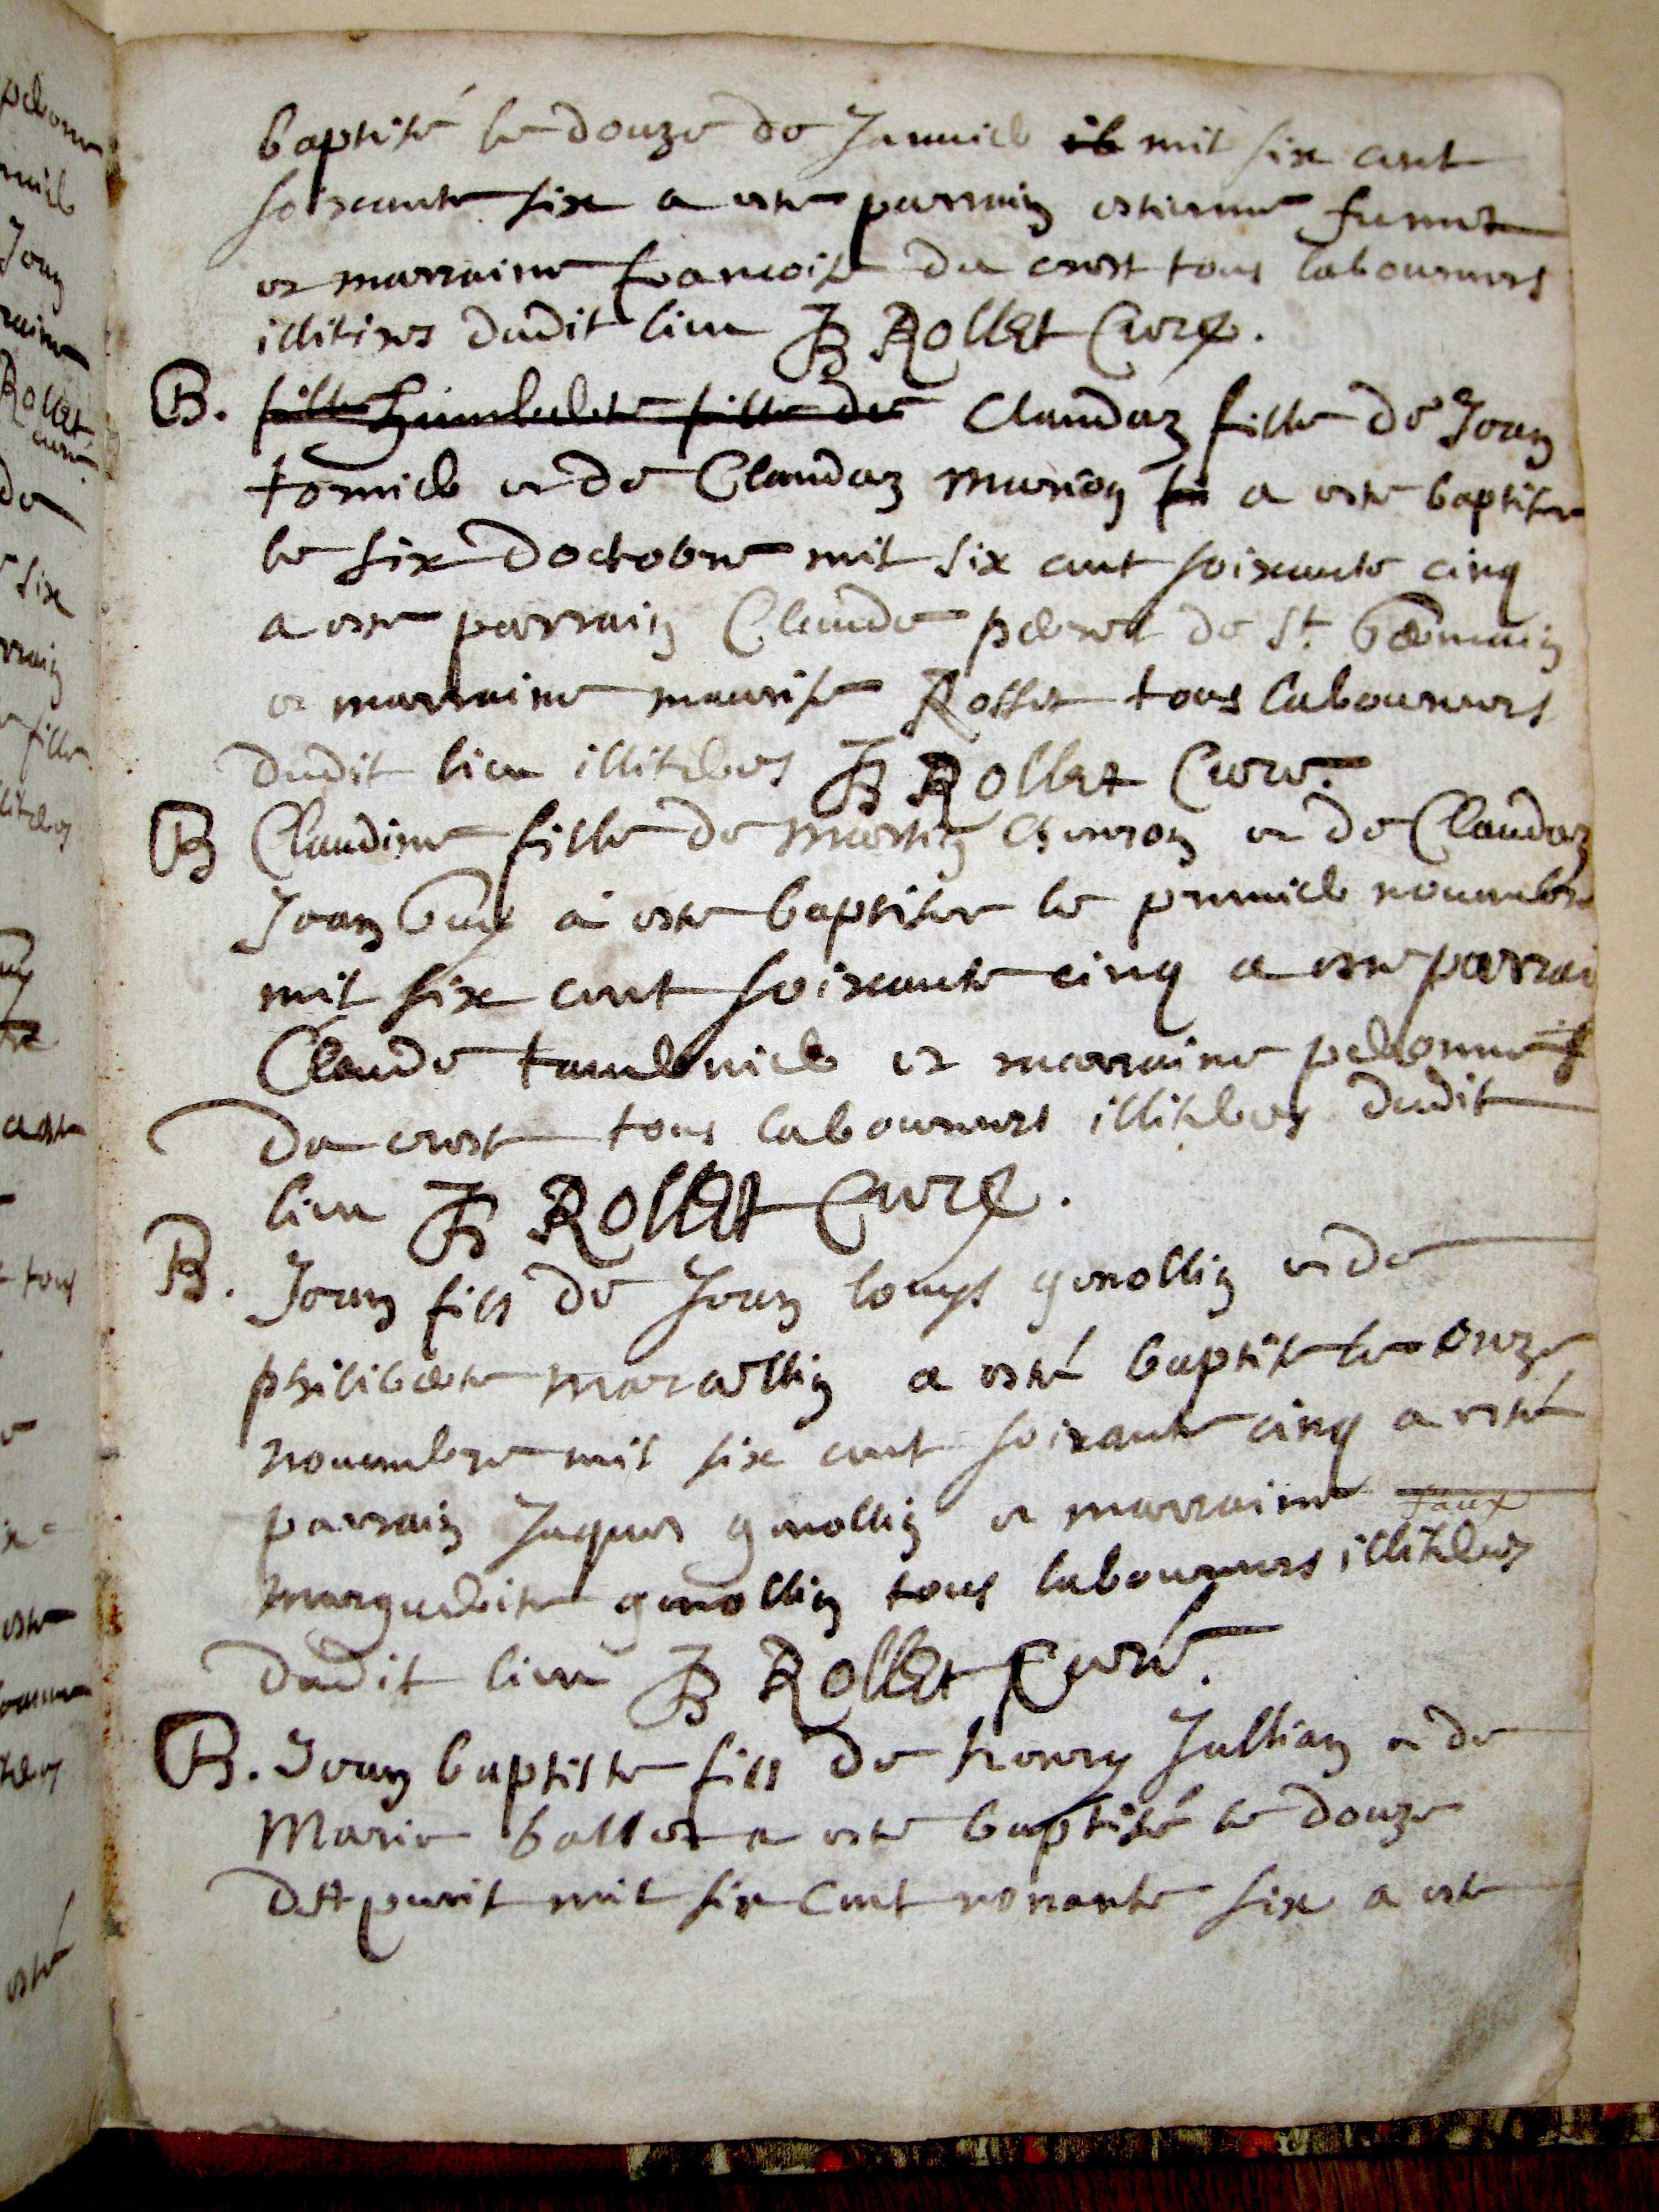 baptisé le douze de Januier mil six cent
soixante six a este parrain estienne
et marraine francoise du crest tous laboureurs
illiteres dudit lieu JB Rollet Curé.
B. fille humberte fille de Claudaz fille de Jean
tornier et de Claudaz Marion a este baptisee
le six doctobre mil six cent soixante cinq
a este parrain Claude perret de St. Germain
et marraine maurise Rosset tous laboureurs
dudit lieu illiterés JB Rollet Curé.
B Claudine fille de Martin Chenron et de Claudaz
Jean Guy a este baptisee le premier nouembre
mil six cent soixante cinq a este parrai
Claude et marraine peronne
Du crest tous laboureurs illiterés dudit
lieu JB Rollet Curé.
B. Jean fils de Jean louys genollin et de
philiberte Marcellin a esté baptisé le onze
nouembre mil six cent soixante cinq a esté
parrain Jaques genollin et marraine
margueritte genollin tous laboureurs illiterés
Dudit lieu JB Rollet Curé.
B. Jean baptiste fils de henry Jullian et de
Marie ballet a este baptisé le douze
mil six Cent nonante six a este
pero
nier
Jean
raine
Rollet
curé.
de
six
rrain
fille
literés
tous
este
esté